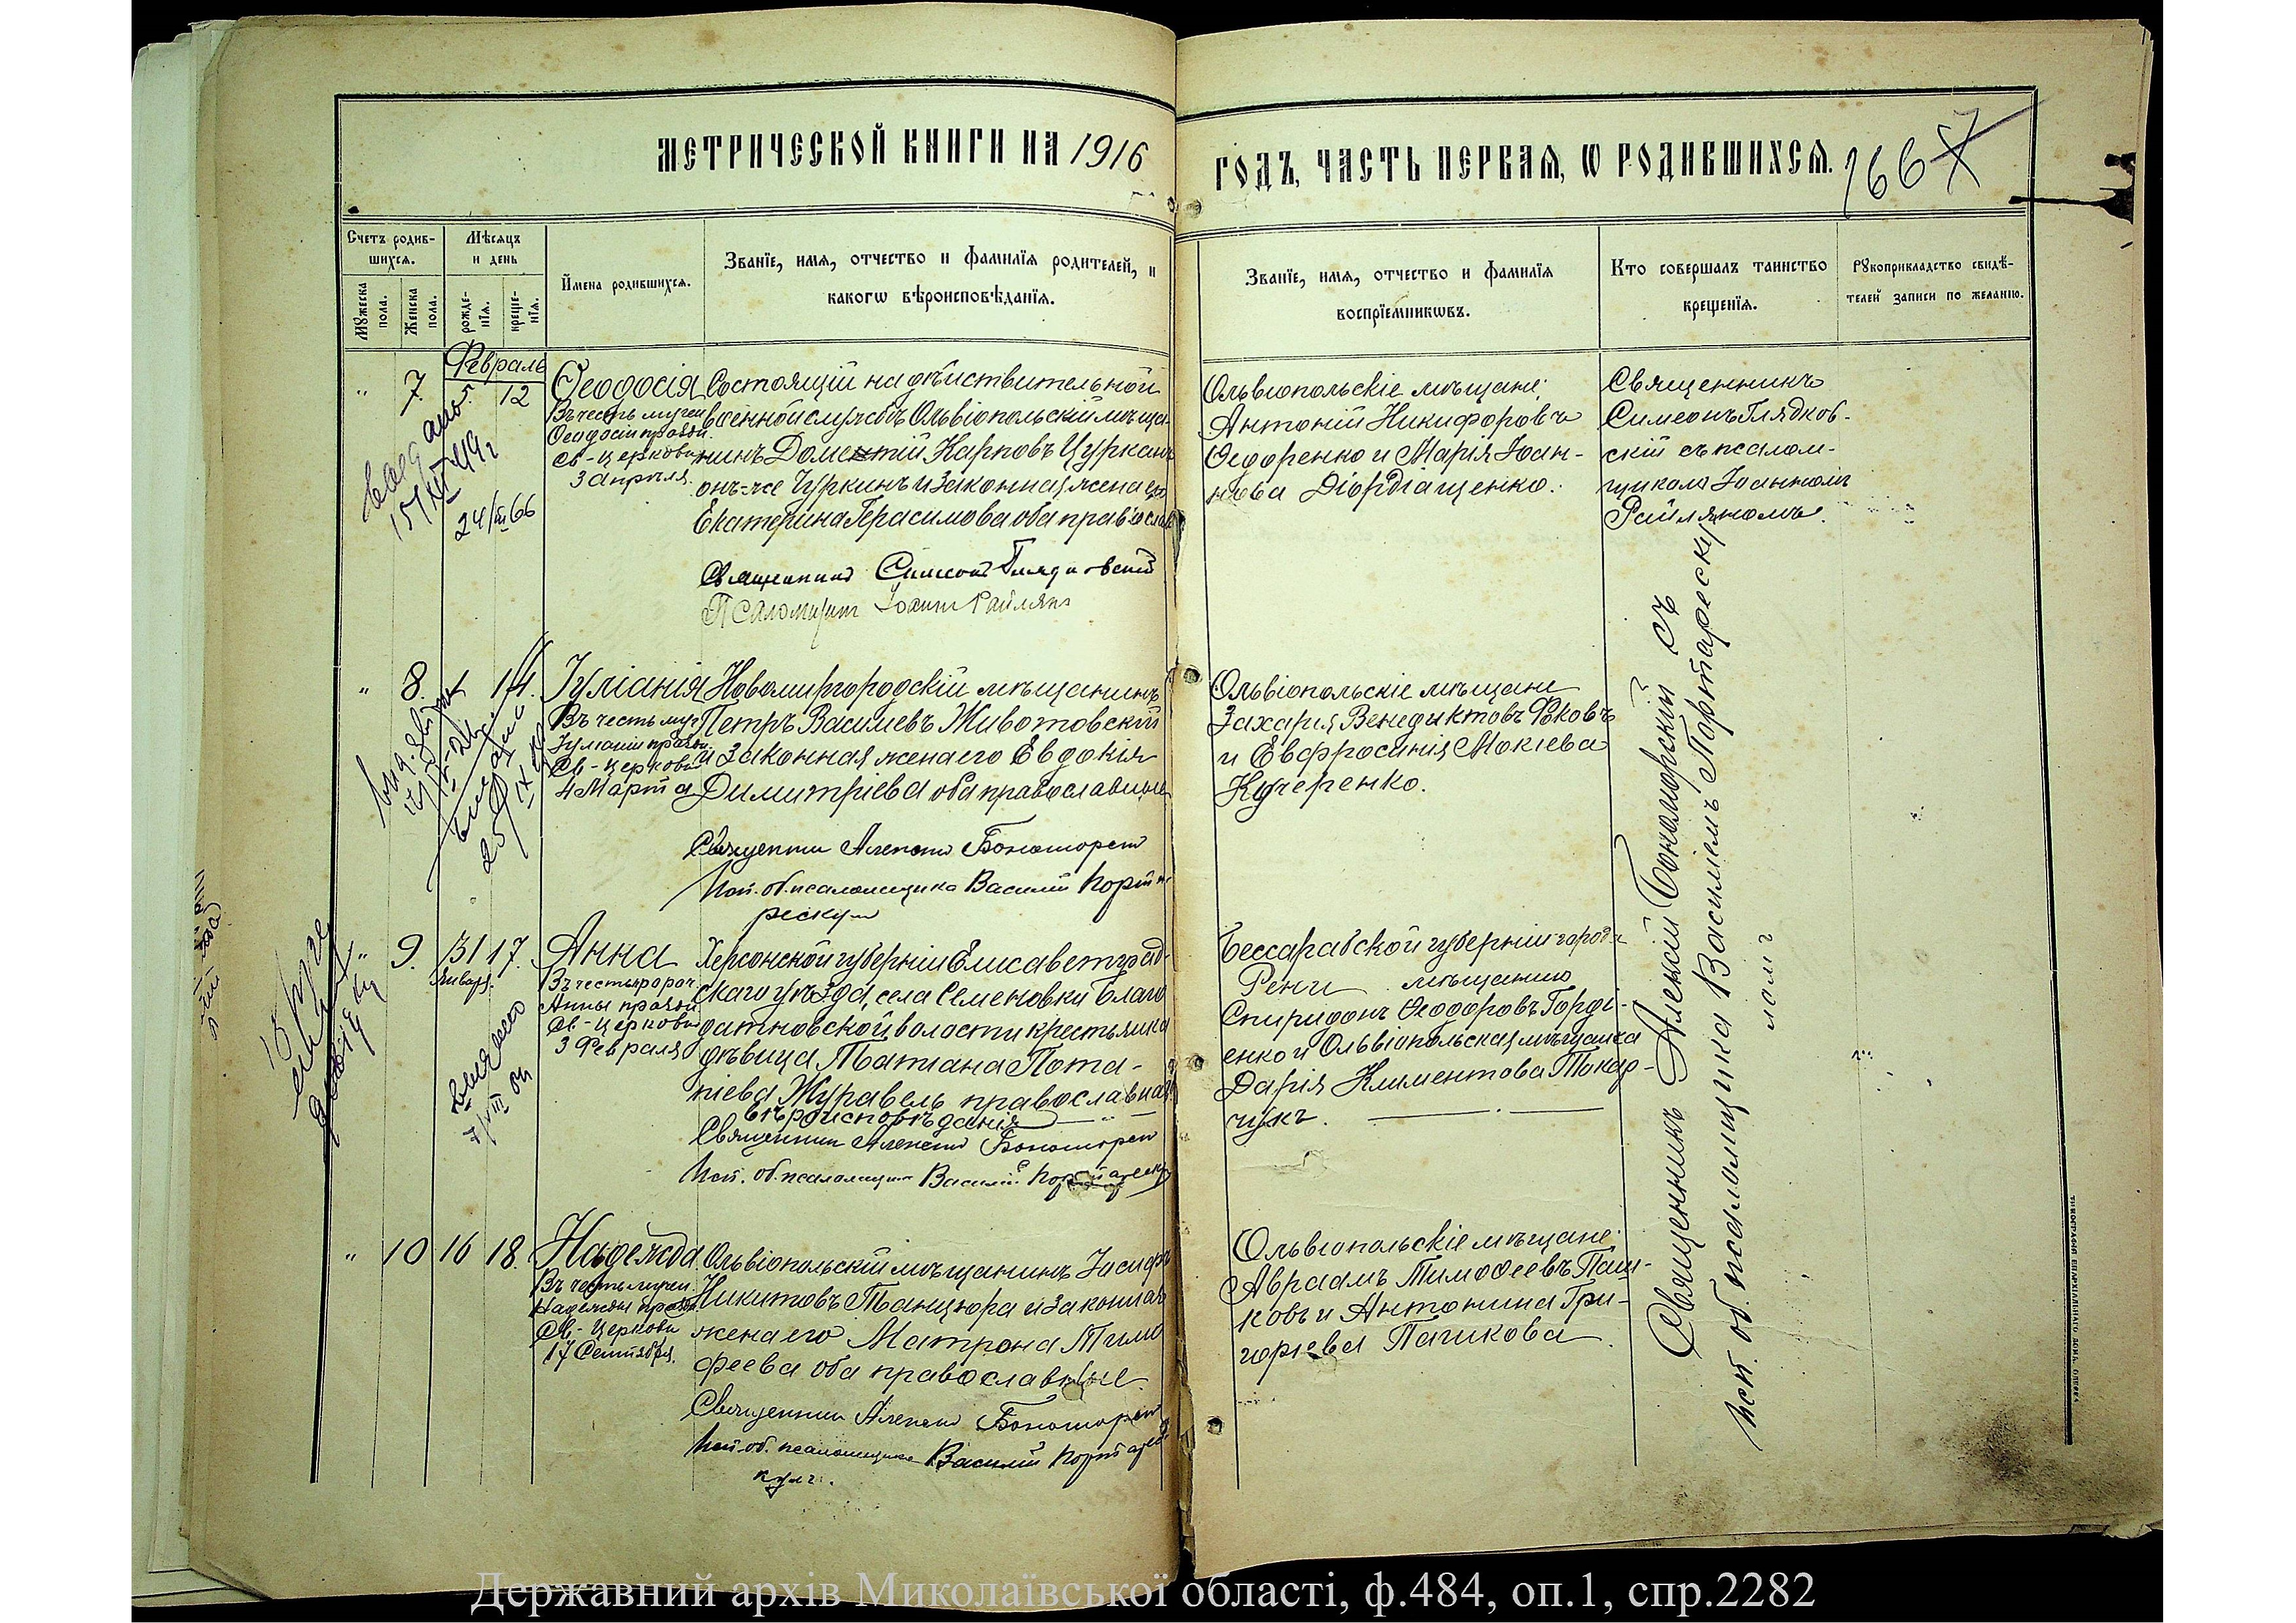 МЕТРИЧЕСКОЙ КНИГИ НА 1916
ГОДЪ, ЧАСТЬ ПЕРВАЯ, Ѡ РОДИВШИХСЯ.
166
Счетъ родив-
шихся.
Мѣсяцъ
и день
Мужеска
пола.
Женска
пола.
рожде-
нїя.
креще-
нїя.
Имена родившихся.
Званїе, имя, отчество и фамилїя родителей, и
какогѡ вѣроисповѣданїя.
Званїе, имя, отчество и фамилїя
воспрїемникѡвъ.
Кто совершалъ таинство
крещенїя.
Рукоприкладство свидѣ-
телей записи по желанию.
Февраль
" 7. 5. 12
Ѳеодосія
Въ честь мучен.
Ѳеодосіи празdн.
Св-Церковію
3 Апрѣля.
24/III 66
Состоящій на дѣйствительной
военной службѣ Ольвіопольскій мѣща-
нинъ Дометій Карповъ Цурканъ
онъ-же Чуркинъ и законная жена его
Екатерина Герасимова оба правосла
Священникъ Симеонъ Глядковскій
Псаломщикъ Іоаннъ Райлянъ
Ольвіопольскіе мѣщане:
Антоній Никифоровъ
Ѳедоренко и Марія Іоан-
нова Діордіащенко.
Священникъ
Симеонъ Глядков-
скій съ псалом-
щикомъ Іоанномъ
Райляномъ.
" 8. 14.
Іуліанія
Въ честь муч.
Іуліаніи праздн.
Св-Церковію
4 Марта
Новомиргородскій мѣщанинъ
Петръ Василіевъ Животовскій
и законная жена его Евдокія
Димитріева оба православные
Священникъ Алексій Бономорскій
Исп. об. псаломщика Василій Порта
рескулъ
Ольвіопольскіе мѣщане
Захарія Венедиктовъ
и Евфросинія Мокіева
Кучеренко.
Священникъ Алексій Бономорскій съ
исп. об. псаломщика Василіемъ Портареску
ломъ
" 9. 31 17.
Января.
Анна
Въ честь прор.
Анны праздн.
Св-Церковію
3 Февраля
Херсонской губерніи Елисаветград-
скаго уѣзда, села Семеновки Благо
датновской волости крестьянка
дѣвица Татіана Пота-
піева Журавель православнаго
вѣроисповѣданія
Священникъ Алексій Бономорскій
Исп. об. псаломщика Василій Портарескулъ
Бессарабской губерніи города
Рени мѣщанинъ
Спиридонъ Ѳеодоровъ Горді-
енко и Ольвіопольская мѣщанка
Дарія Климентова Токар-
чукъ.
" 10 16 18.
Надежда
Въ честь мучен.
Надежды праздн.
Св-Церковію
17 Сентября.
Ольвіопольскій мѣщанинъ Іосифъ
Никитовъ Танцюра и законная
жена его Матрона Тимо
феева оба православные.
Священникъ Алексій Бономорскій
Исп. об. псаломщика Василій Портарес
кулъ.
Ольвіопольскіе мѣщане:
Авраамъ Тимоѳеевъ Паш-
ковъ и Антонина Гри-
горьева Пашкова
Державний архів Миколаївської області, ф.484, оп.1, спр.2282